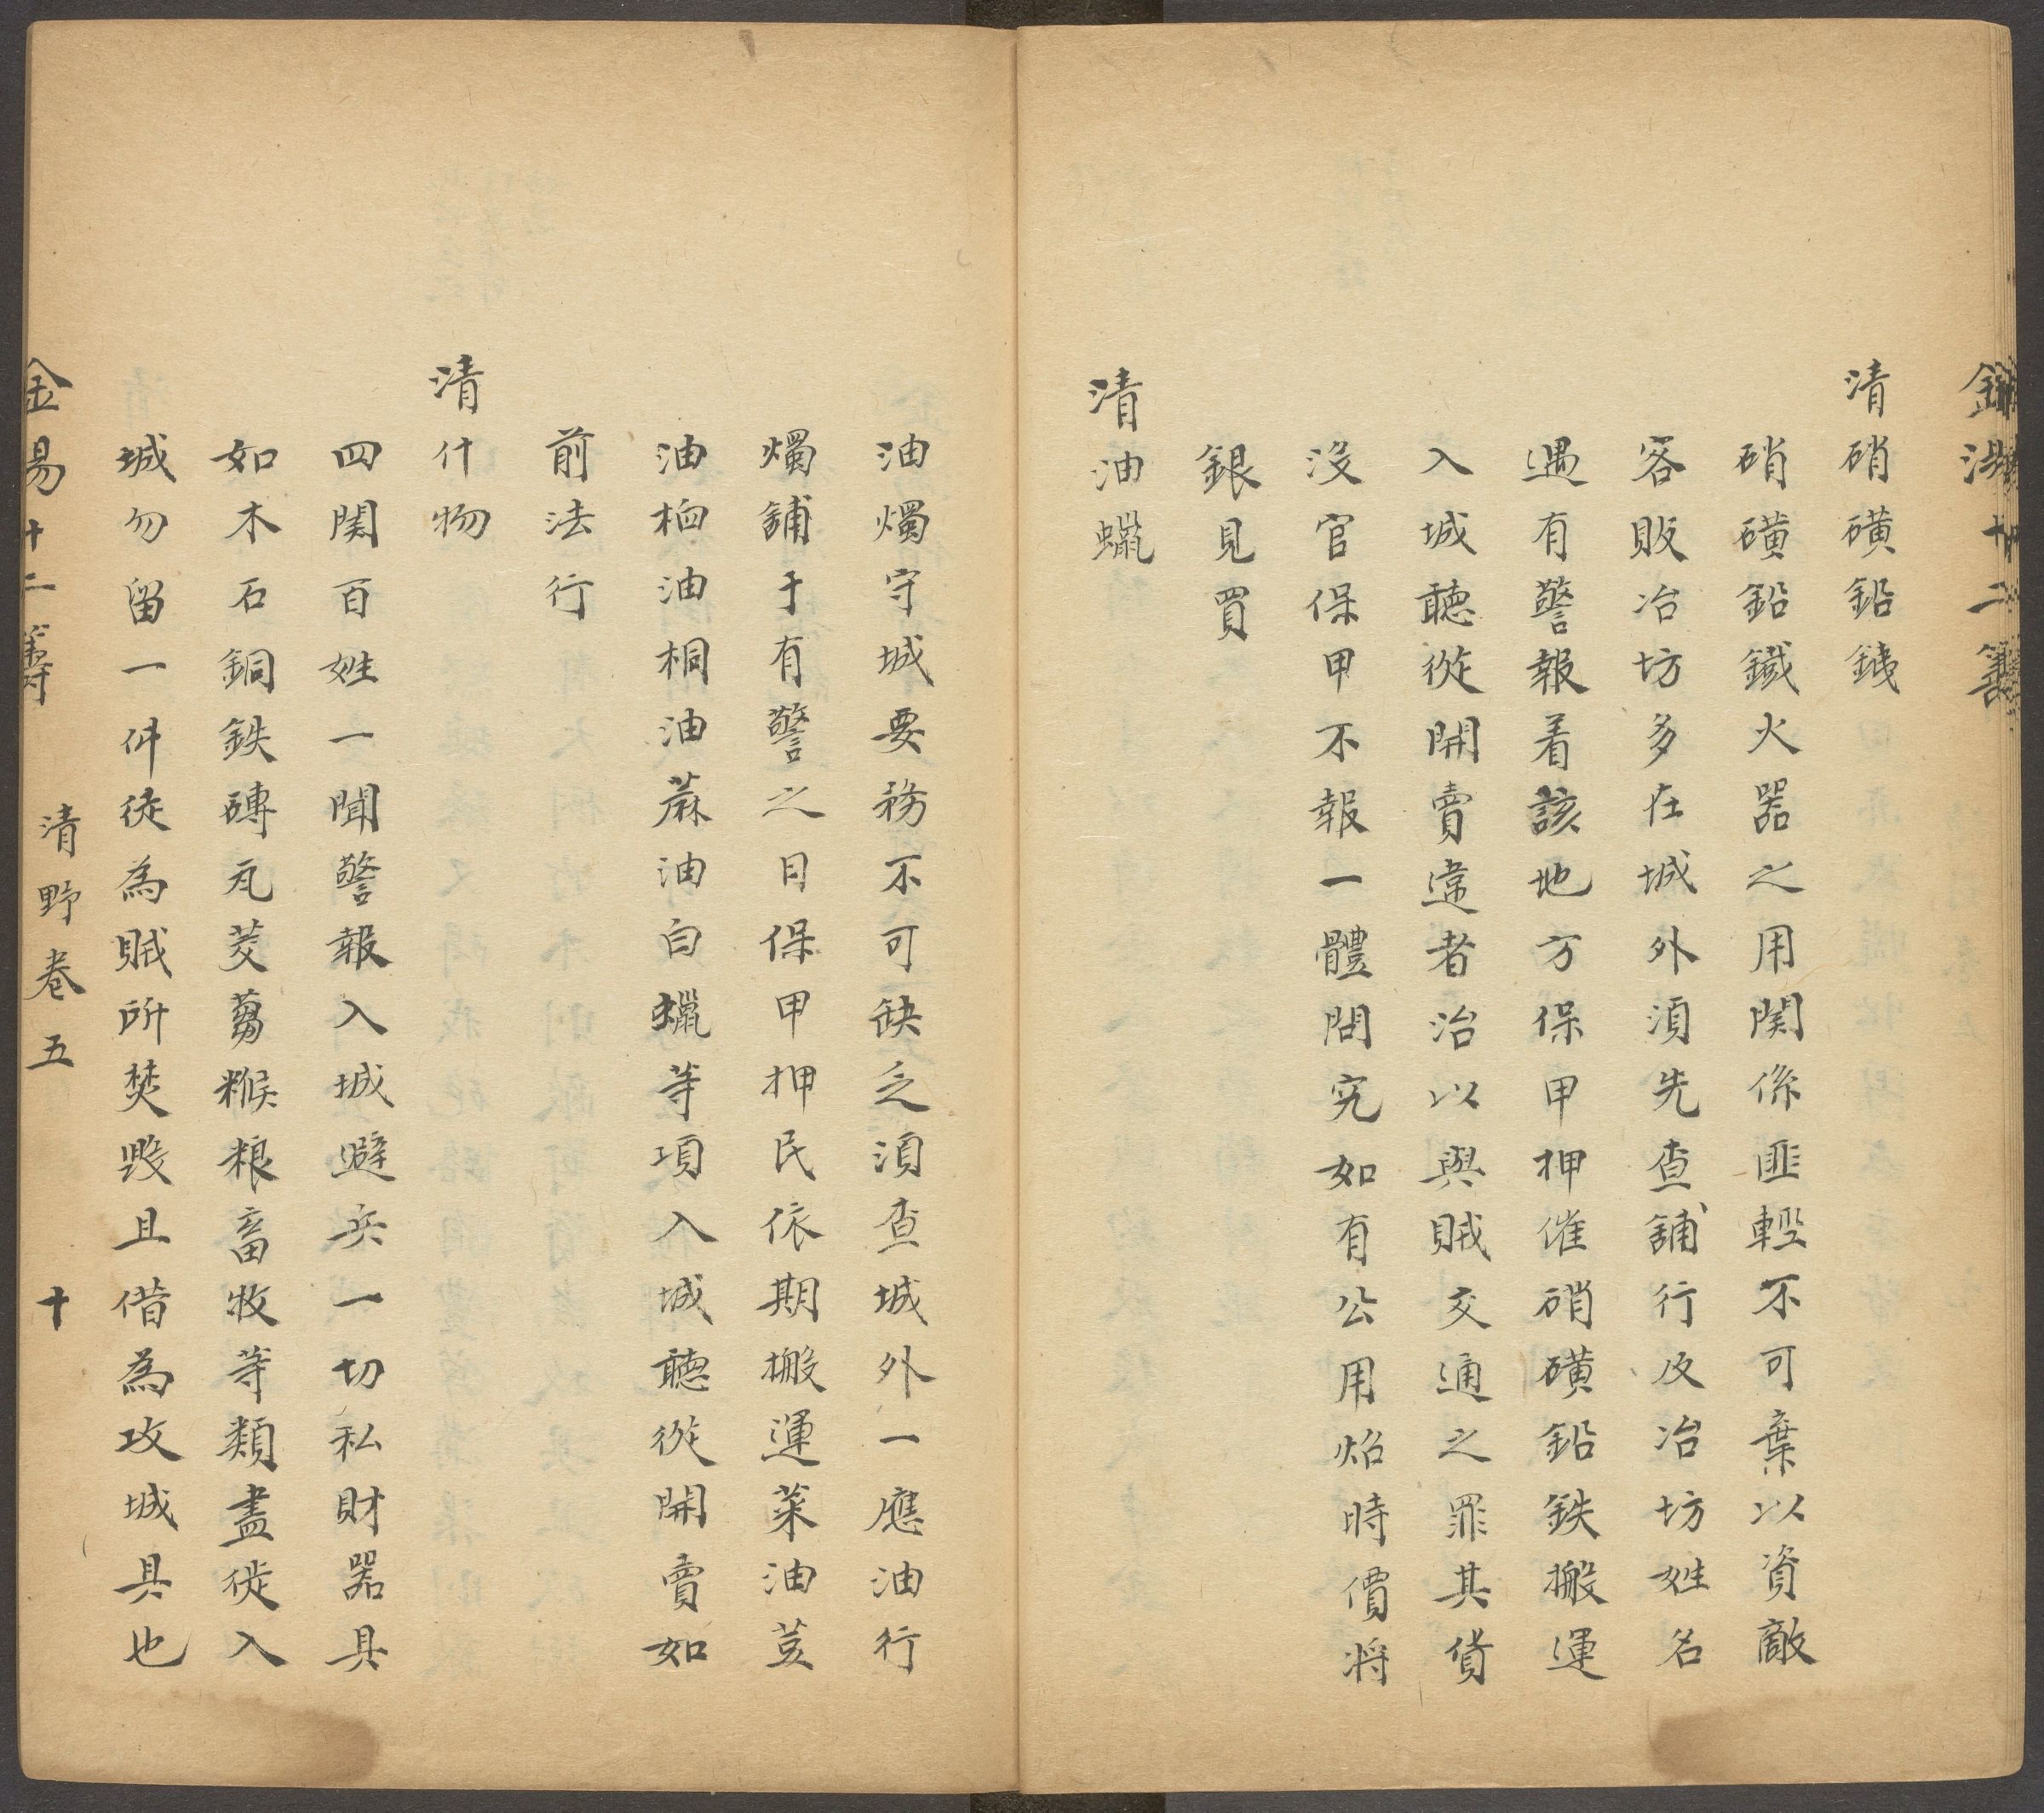 清硝磺鉛鉄
硝磺鉛鐡火器之用関係匪輕不可棄以資敵
客販冶坊多在城外湏先查舖行及冶坊姓名
遇有警報着該地方保甲押催硝磺鉛鉄搬運
入城聴從開賣違者治以與賊交通之罪其貨
沒官保甲不報一體問究如有公用炤時價将
銀見買
清油蠟
油燭守城要務不可缺乏湏查城外一應油行
燭舖于有警之日保甲押民依期搬運菜油荳
油桕油桐油蔴油白蠟等項入城聴從開賣如
前法行
清什物
四関百姓一聞警報入城避兵一切私財器具
如木石銅鉄磚瓦茭蒭糇粮畜牧等類盡徙入
城勿留一件徒為賊所焚毀且借為攻城具也
金昜十二籌 清野卷五 十